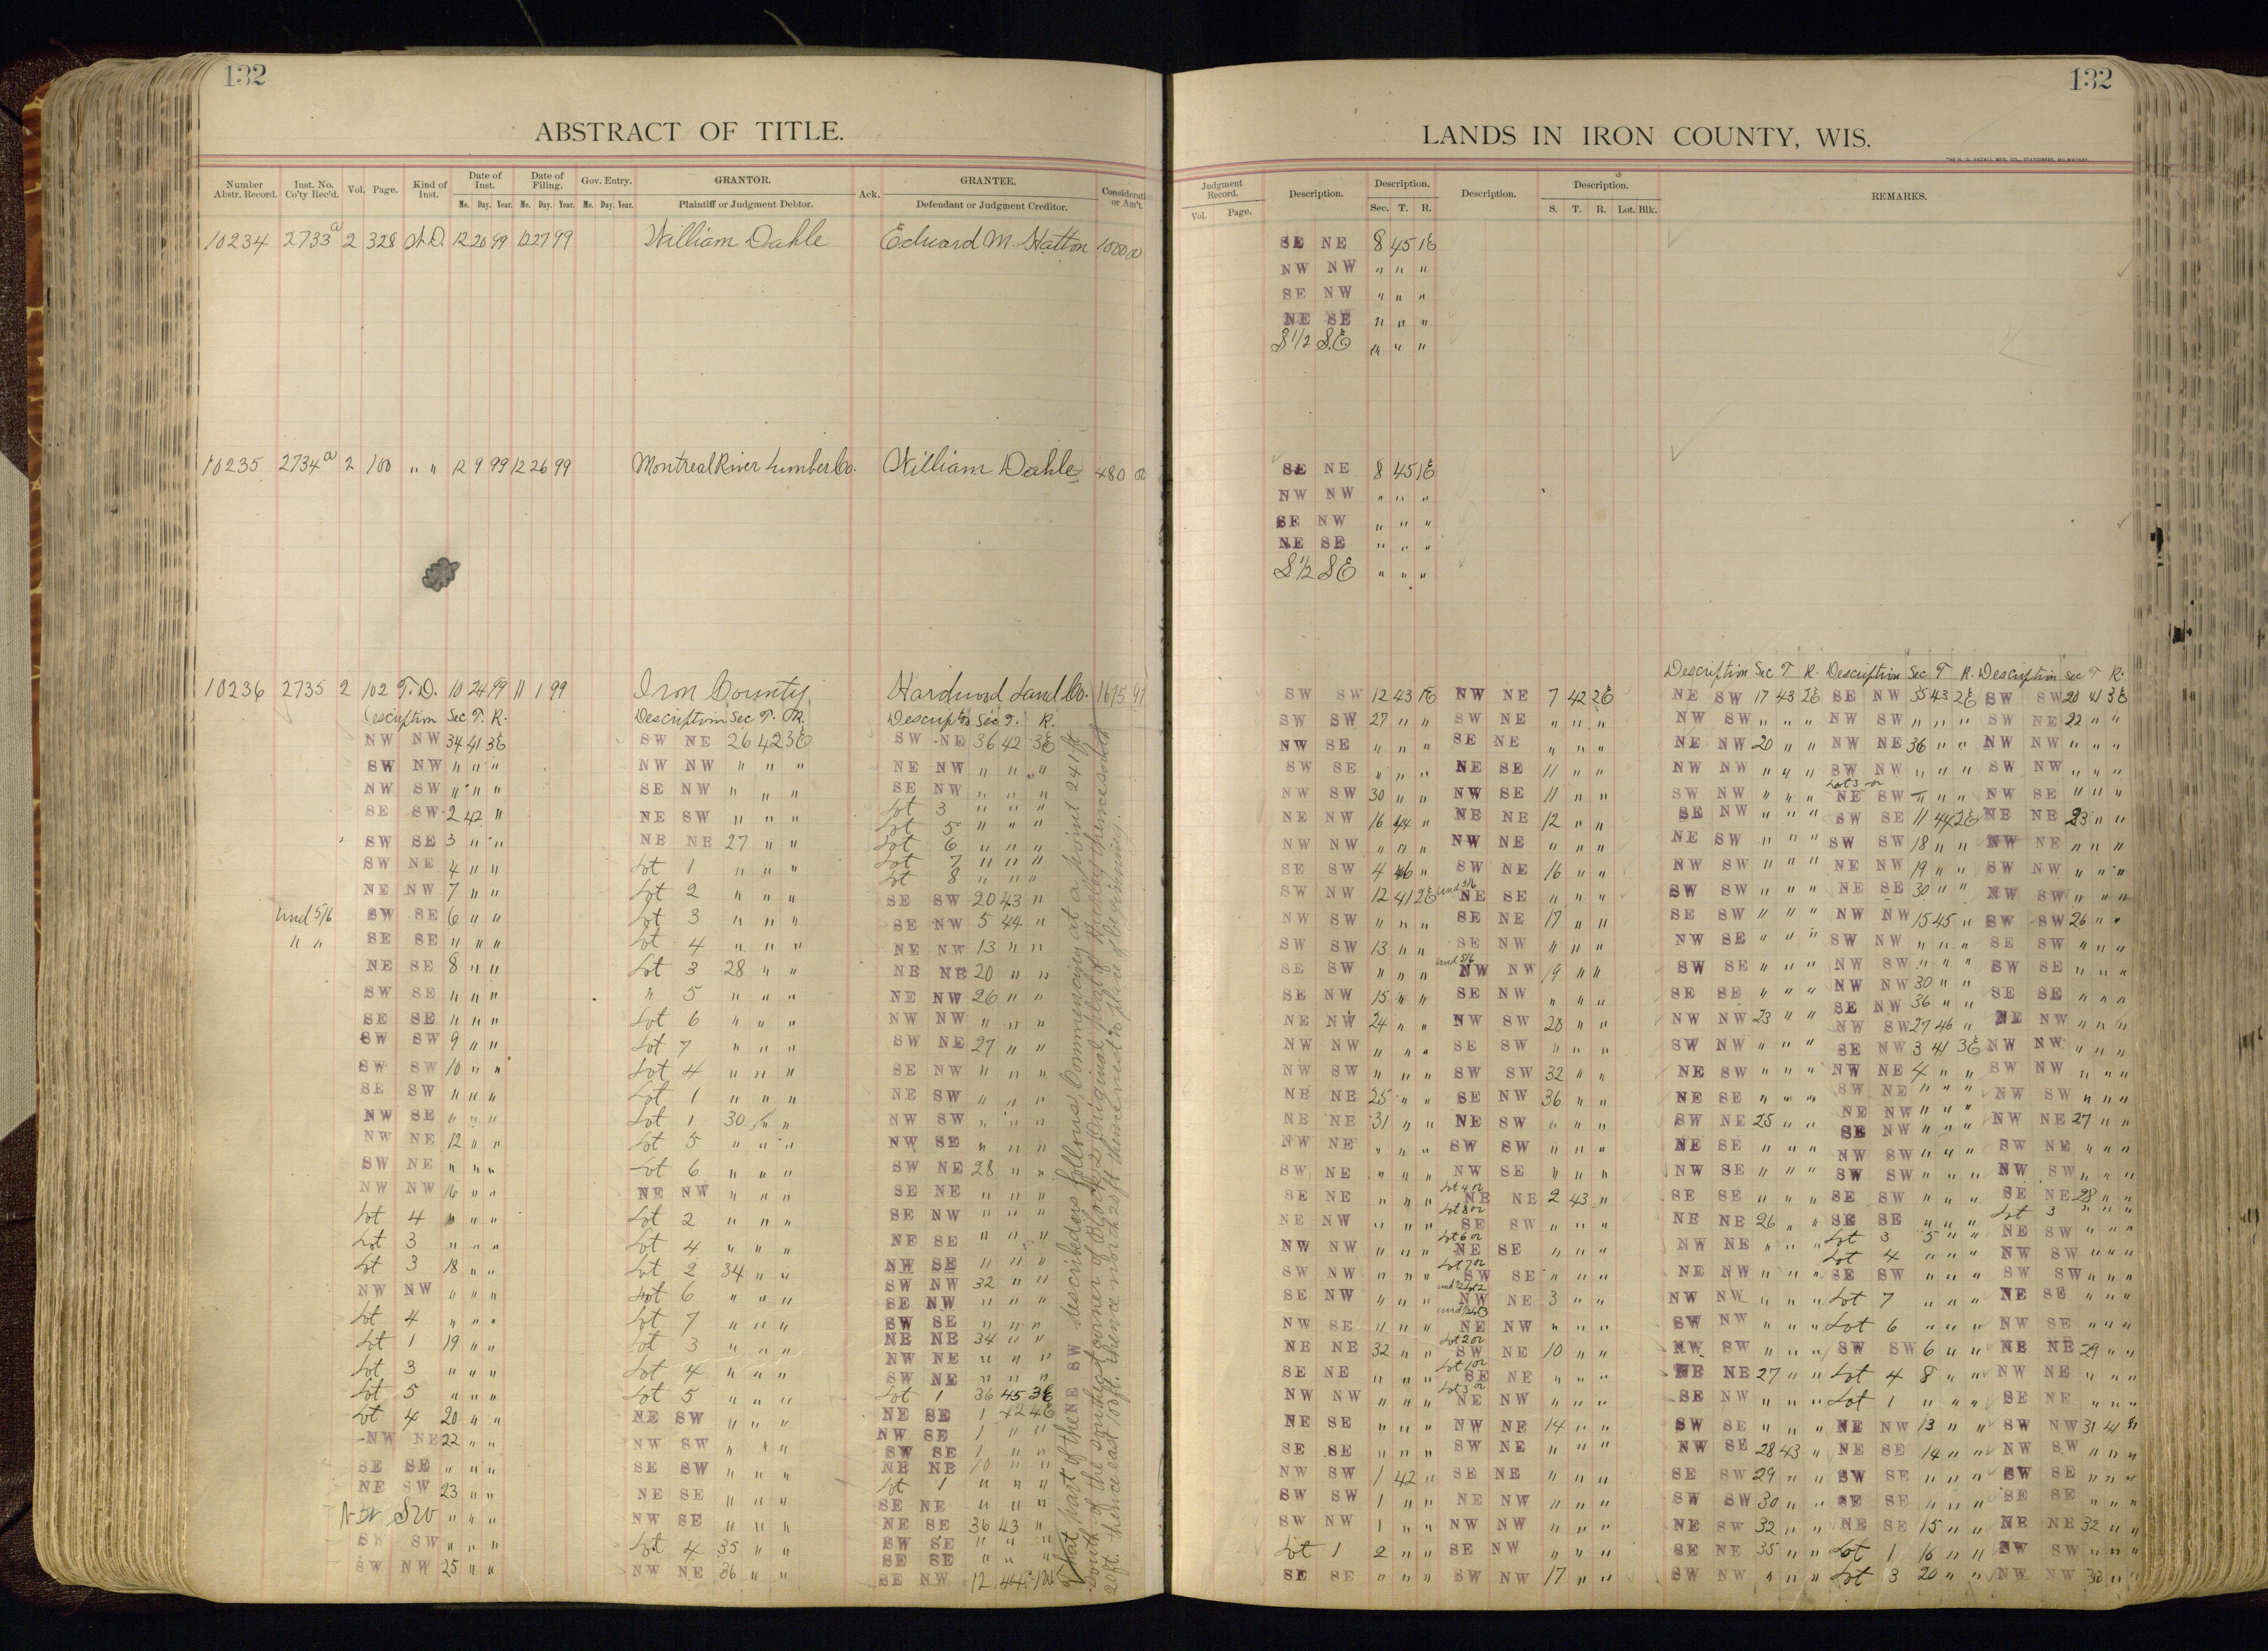 132
ABSTRACT OF TITLE.
Number Abstr. Record. Inst. No. Co'ty Rec'd. Vol. Page. Kind of Inst. Date of Inst. Date of Filing. Gov. Entry. GRANTOR. Ack. GRANTEE. Considerati or Am't.
Mo. Day. Year. Mo. Day. Year. Mo. Day. Year. Plaintiff or Judgment Debtor. Defendant or Judgment Creditor.
10234 2733a 2 328 12 20 99 12 27 99 William Dahle Edward M. Hatton 1000
10235 2734a 2 100 " " 12 9 99 12 26 99 Montreal River Lumber Co. William Dahle 480
10236 2735 2 102 T.D. 10 24 99 11 1 99 Iron County Hardwood Land Co. 1675 97
Description Sec T. R. Description Sec T. R. Sec T. R.
NW NW 34 41 3E SW NE 26 42 3E SW NE 36 42 3E
SW NW " " " NW NW " " " NE NW " " "
NW SW " " " SE NW " " " SE NW " " "
SE SW 2 42 " NE SW " " " Lot 3 " " "
SW SE 3 " " NE NE 27 " " Lot 5 " " "
SW NE 4 " " Lot 1 " " " Lot 6 " " "
NE NW 7 " " Lot 2 " " " Lot 7 " " "
Und 5/6 SW SE 6 " " Lot 3 " " " Lot 8 " " "
" " SE SE " " " Lot 4 " " " SE SW 20 43 "
NE SE 8 " " Lot 3 28 " " SE NW 5 44 "
SW SE " " " " 5 " " " NE NW 13 " "
SE SE " " " Lot 6 " " " NE NE 20 " "
SW SW 9 " " Lot 7 " " " NE NW 26 " "
SW SW 10 " " Lot 4 " " " NW NW " " "
SE SW " " " Lot 1 " " " SW NE 27 " "
NW SE " " " Lot 1 30 " " SE NW " " "
NW NE 12 " " Lot 5 " " " NE SW " " "
SW NE " " " Lot 6 " " " NW SW " " "
NW NW 16 " " NE NW " " " NW SE " " "
Lot 4 " " " Lot 2 " " " SW NE 28 " "
Lot 3 " " " Lot 4 " " " SE NE " " "
Lot 3 18 " " Lot 2 34 " " SE NW " " "
NW NW " " " Lot 6 " " " NE SE " " "
Lot 4 " " " Lot 7 " " " NW SE " " "
Lot 1 19 " " Lot 3 " " " SW NW 32 " "
Lot 3 " " " Lot 4 " " " SE NW " " "
Lot 5 " " " Lot 5 " " " SW SE " " "
Lot 4 20 " " NE SW " " " NE NE 34 " "
NW NE 22 " " NW SW " " " NW NE " " "
SE SE " " " SE SW " " " SW NE " " "
NE SW 23 " " NE SE " " " Lot 1 36 45 3E
NW SW " " " NW SE " " " NE SE 1 42 4E
SW SW " " " Lot 4 35 " " NW SE 1 " "
SW NW 25 " " NW NE 36 " " SW SE 1 " "
NE NE 10 " "
Lot 1 " " "
SE NE " " "
NE SE 36 43 "
SW SE " " "
SE SE " " "
SE NW 12 44
That part of the NE SW described as follows: Commencing at a point 241 ft
South of the southeast corner of Block 2 Original plat of Hurley thence south
20 ft. thence east 100 ft. thence north 20 ft thence west to place of beginning.
132
LANDS IN IRON COUNTY, WIS.
Judgment Record. Description. Description. Description. Description. REMARKS.
Vol. Page. Sec. T. R. S. T. R. Lot. Blk.
SE NE 8 45 1E
NW NW " " "
SE NW " " "
NE SE " " "
S 1/2 SE " " "
SE NE 8 45 1E
NW NW " " "
SE NW " " "
NE SE " " "
S 1/2 SE " " "
Description Sec T R. Description Sec T R. Description Sec T R.
SW SW 12 43 1E NW NE 7 42 2E NE SW 17 43 2E SE NW 35 43 2E SW SW 20 41 3E
SW SW 27 " " SW NE " " " NW SW " " " NW SW " " " SW NE 22 " "
NW SE " " " SE NE " " " NE NW 20 " " NW NE 36 " " NW NW " " "
SW SE " " " NE SE 11 " " NW NW " " " SW NW " " " SW NW " " "
NW SW 30 " " NW SE 11 " " SW NW " " " Lot 3 or NE SW " " " NW SE " " "
NE NW 16 44 " NE NE 12 " " SE NW " " " SW SE 11 44 2E NE NE 23 " "
NW NW " " " NW NE " " " NE SW " " " SW SW 18 " " NW NE " " "
SE SW 4 46 " SW NE 16 " " NW SW " " " NE NW 19 " " SW NW " " "
SW NW 12 41 2E Und 5/6 NE SE " " " SW SW " " " NE SE 30 " " NW SW " " "
NW SW " " " SE NE 17 " " SE SW " " " NW NW 15 45 " SW SW 26 " "
SW SW 13 " " SE NW " " " NW SE " " " SW NW " " " SE SW " " "
SE SW " " " Und 5/6 NW NW 19 " " SW SE " " " NW SW " " " SW SE " " "
SE NW 15 " " SE NW " " " SE SE " " " NW NW 30 " " SE SE " " "
NE NW 24 " " NW SW 20 " " NW NW 23 " " SE NW 36 " " NE NW " " "
NW NW " " " SE SW " " " SW NW " " " NW SW 27 46 " NW NW " " "
NW SW " " " SW SW 32 " " NE SW " " " SE NW 3 41 3E SW NW " " "
NE NE 25 " " SE NW 36 " " NE SE " " " NW NE 4 " " NW SW " " "
NE NE 31 " " NE SW " " " SW NE 25 " " SW NE " " " NW NE 27 " "
NW NE " " " SW SW " " " NE SE " " " NE NW " " " SW NE " " "
SW NE " " " NW SE " " " NW SE " " " SE NW " " " NW SW " " "
SE NE " " " Lot 4 or NE NE 2 43 " SE SE " " " NW SW " " " SE NE 28 " "
NE NW " " " Lot 8 or SE SW " " " NE NE 26 " " SW SW " " " Lot 3 " " "
NW NW " " " Lot 6 or NE SE " " " NW NE " " " SE SW " " " NE SW " " "
SW NW " " " Lot 7 or SW SE " " " NE NW " " " SE SE " " " NW SW " " "
SE NW " " " NW NE 3 " " NW NW " " " Lot 3 5 " " SW SW " " "
NW SE " " " NE NW " " " SW NW " " " Lot 4 " " " NE SE " " "
NE NE 32 " " Lot 2 or SW NE 10 " " NW SW " " " SE SW " " " NW SE " " "
SE NE " " " Lot 1 or SE NE " " " NE NE 27 " " Lot 7 " " " NE NE 29 " "
NW NW " " " Lot 3 or NE NW " " " SE NW " " " Lot 6 " " " NW NE " " "
NE SE " " " NW NE 14 " " SW SE " " " SW SW 6 " " SE NE " " "
SE SE " " " SW NE " " " NW SE 28 43 " Lot 4 8 " " SW NW 31 41 "
NW SW 1 42 " SE NE " " " SE SW 29 " " Lot 1 " " " NW SW " " "
SW SW 1 " " NE NW " " " SW SW 30 " " NE NW 13 " " SW SE " " "
SW NW 1 " " NW NW " " " NE SW 32 " " NE SE 14 " " SE SE " " "
Lot 1 2 " " SE NW " " " SE NE 35 " " SW SE " " " NE NE 32 " "
SE SE " " " SW NW 17 " " SW NW " " " SE SE " " " SW SW " " "
NE SE 15 " " NW NW 33 " "
Lot 1 16 " "
Lot 3 20 " "